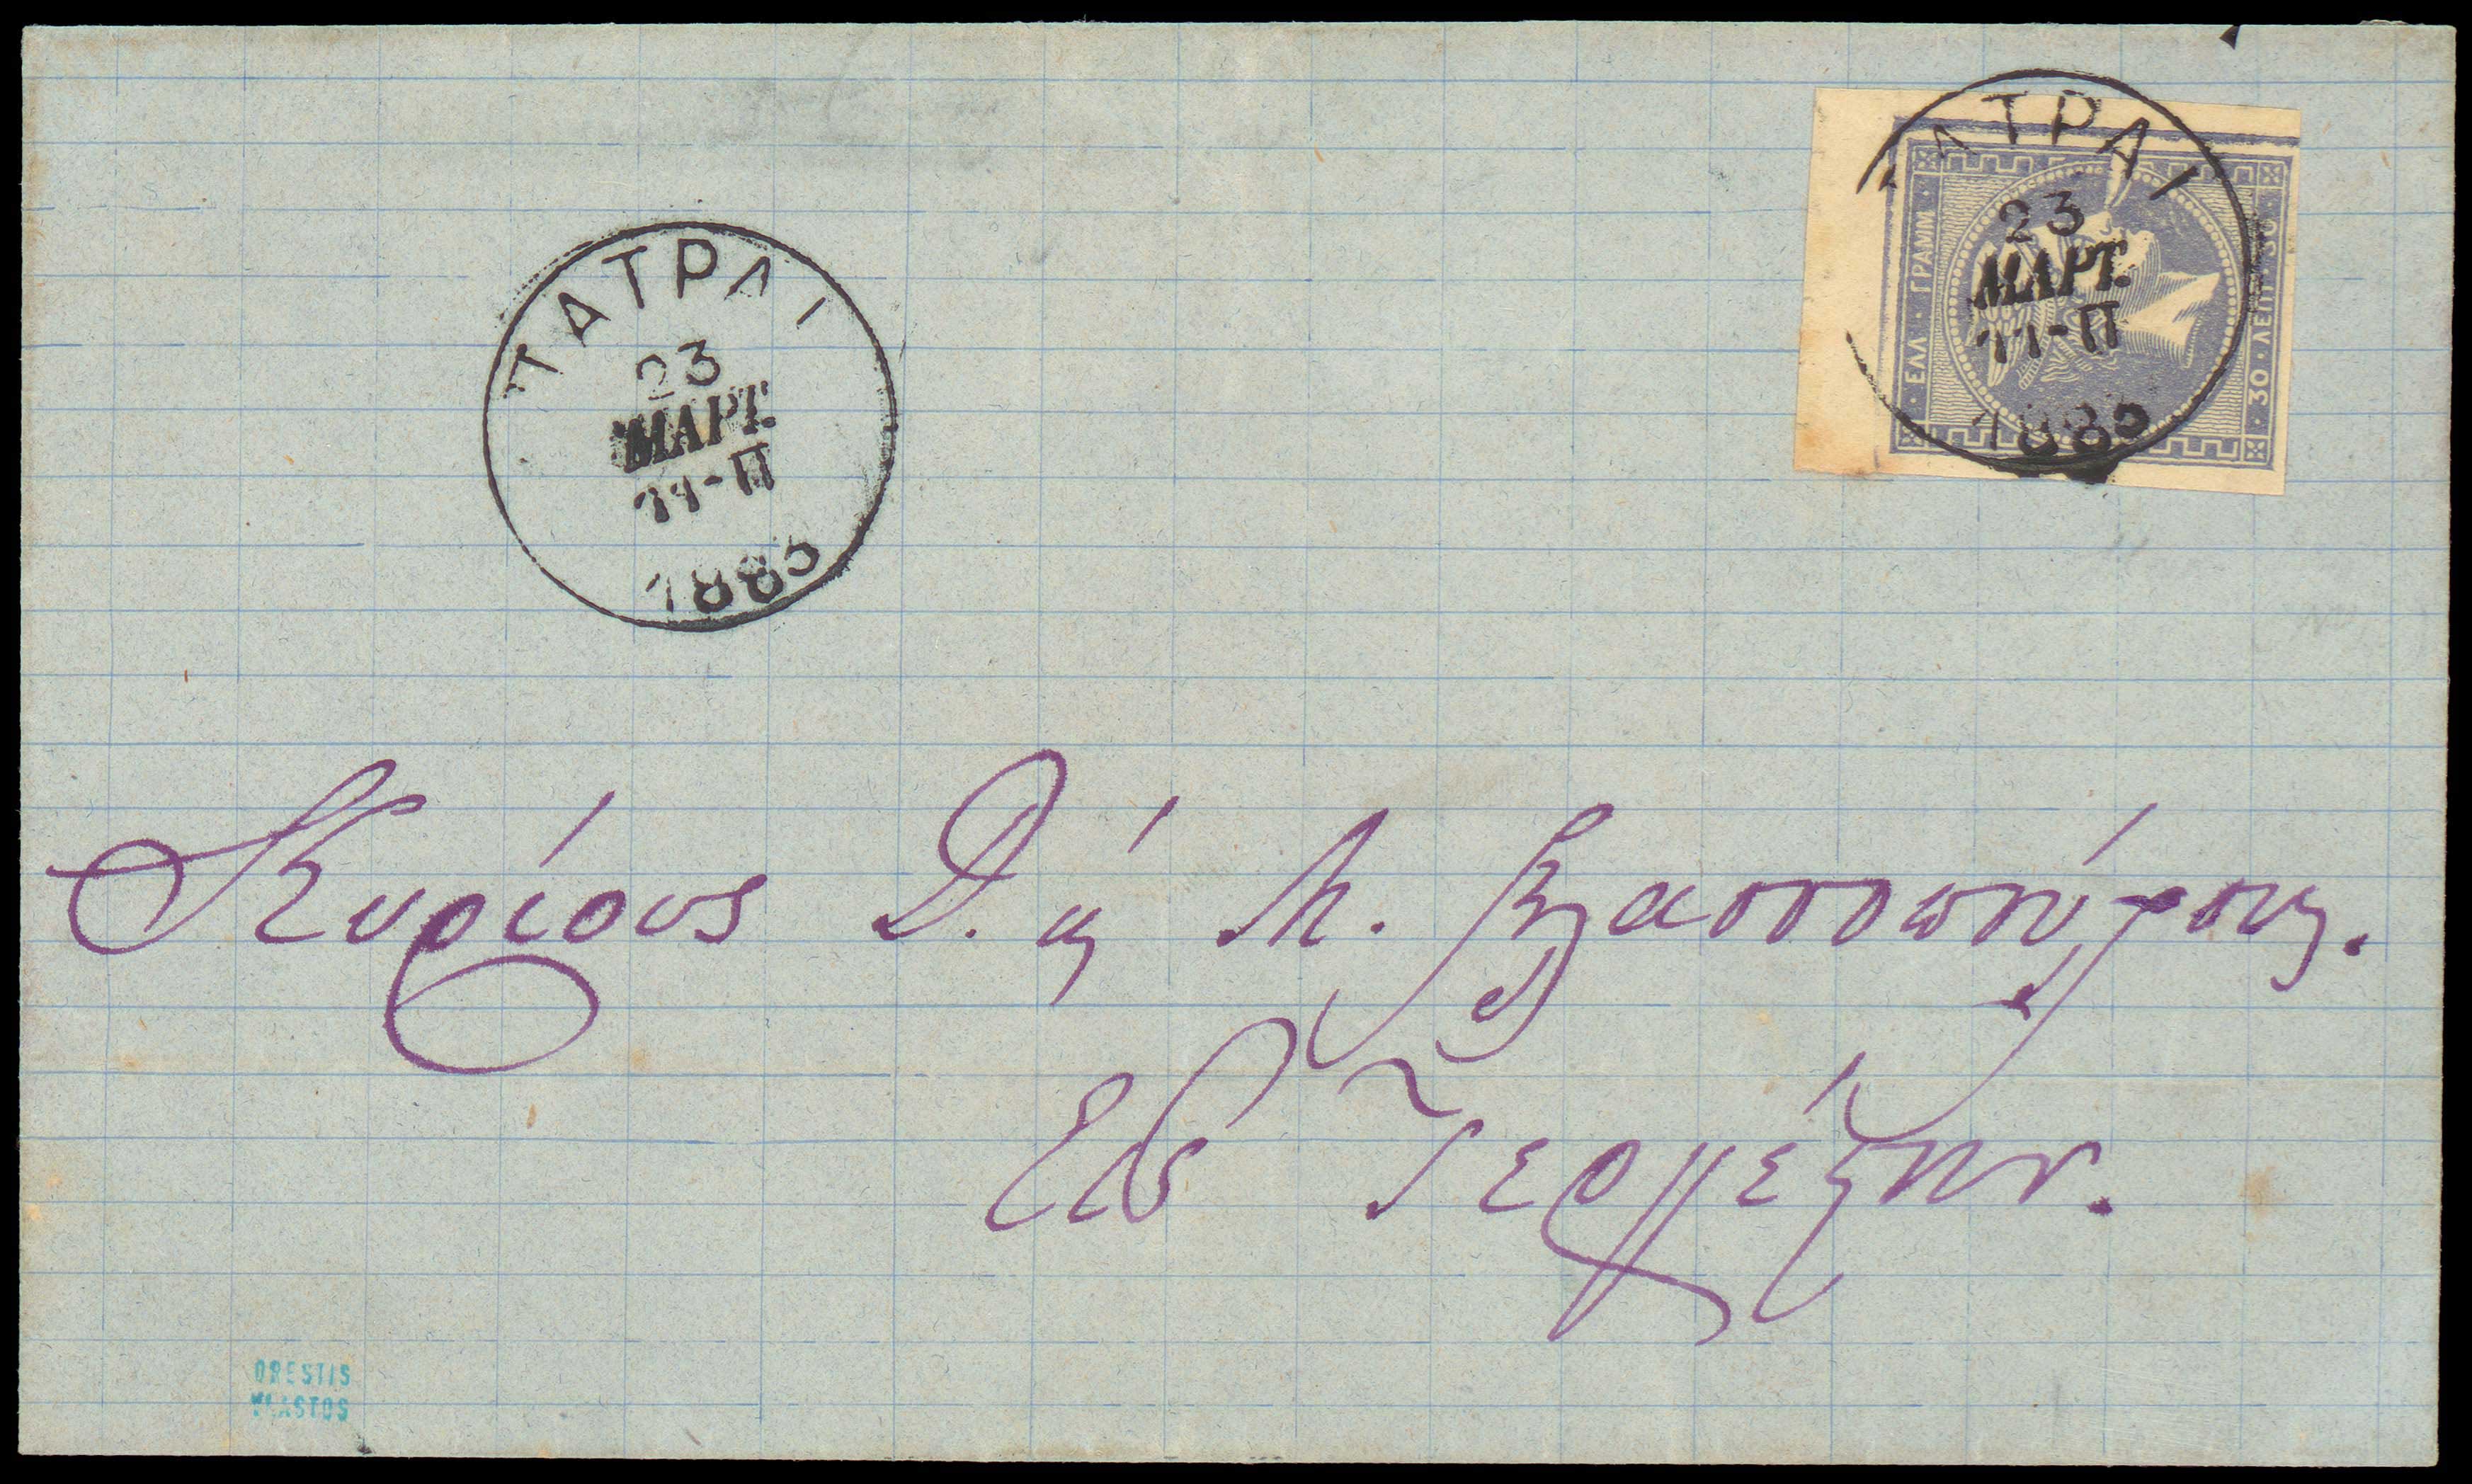 ΠΑΤΡΑΙ
23
ΜΑΡΤ.
11-Π
1883
ΑΤΡΑΙ
23
ΜΑΡΤ.
11-Π
1883
ΕΛΛ · ΓΡΑΜΜ
30 · ΛΕΠΤ · 30
Κυρίους Δ. ϗ Λ.
Εἰς Τεργέστην.
ORESTIS
VLASTOS